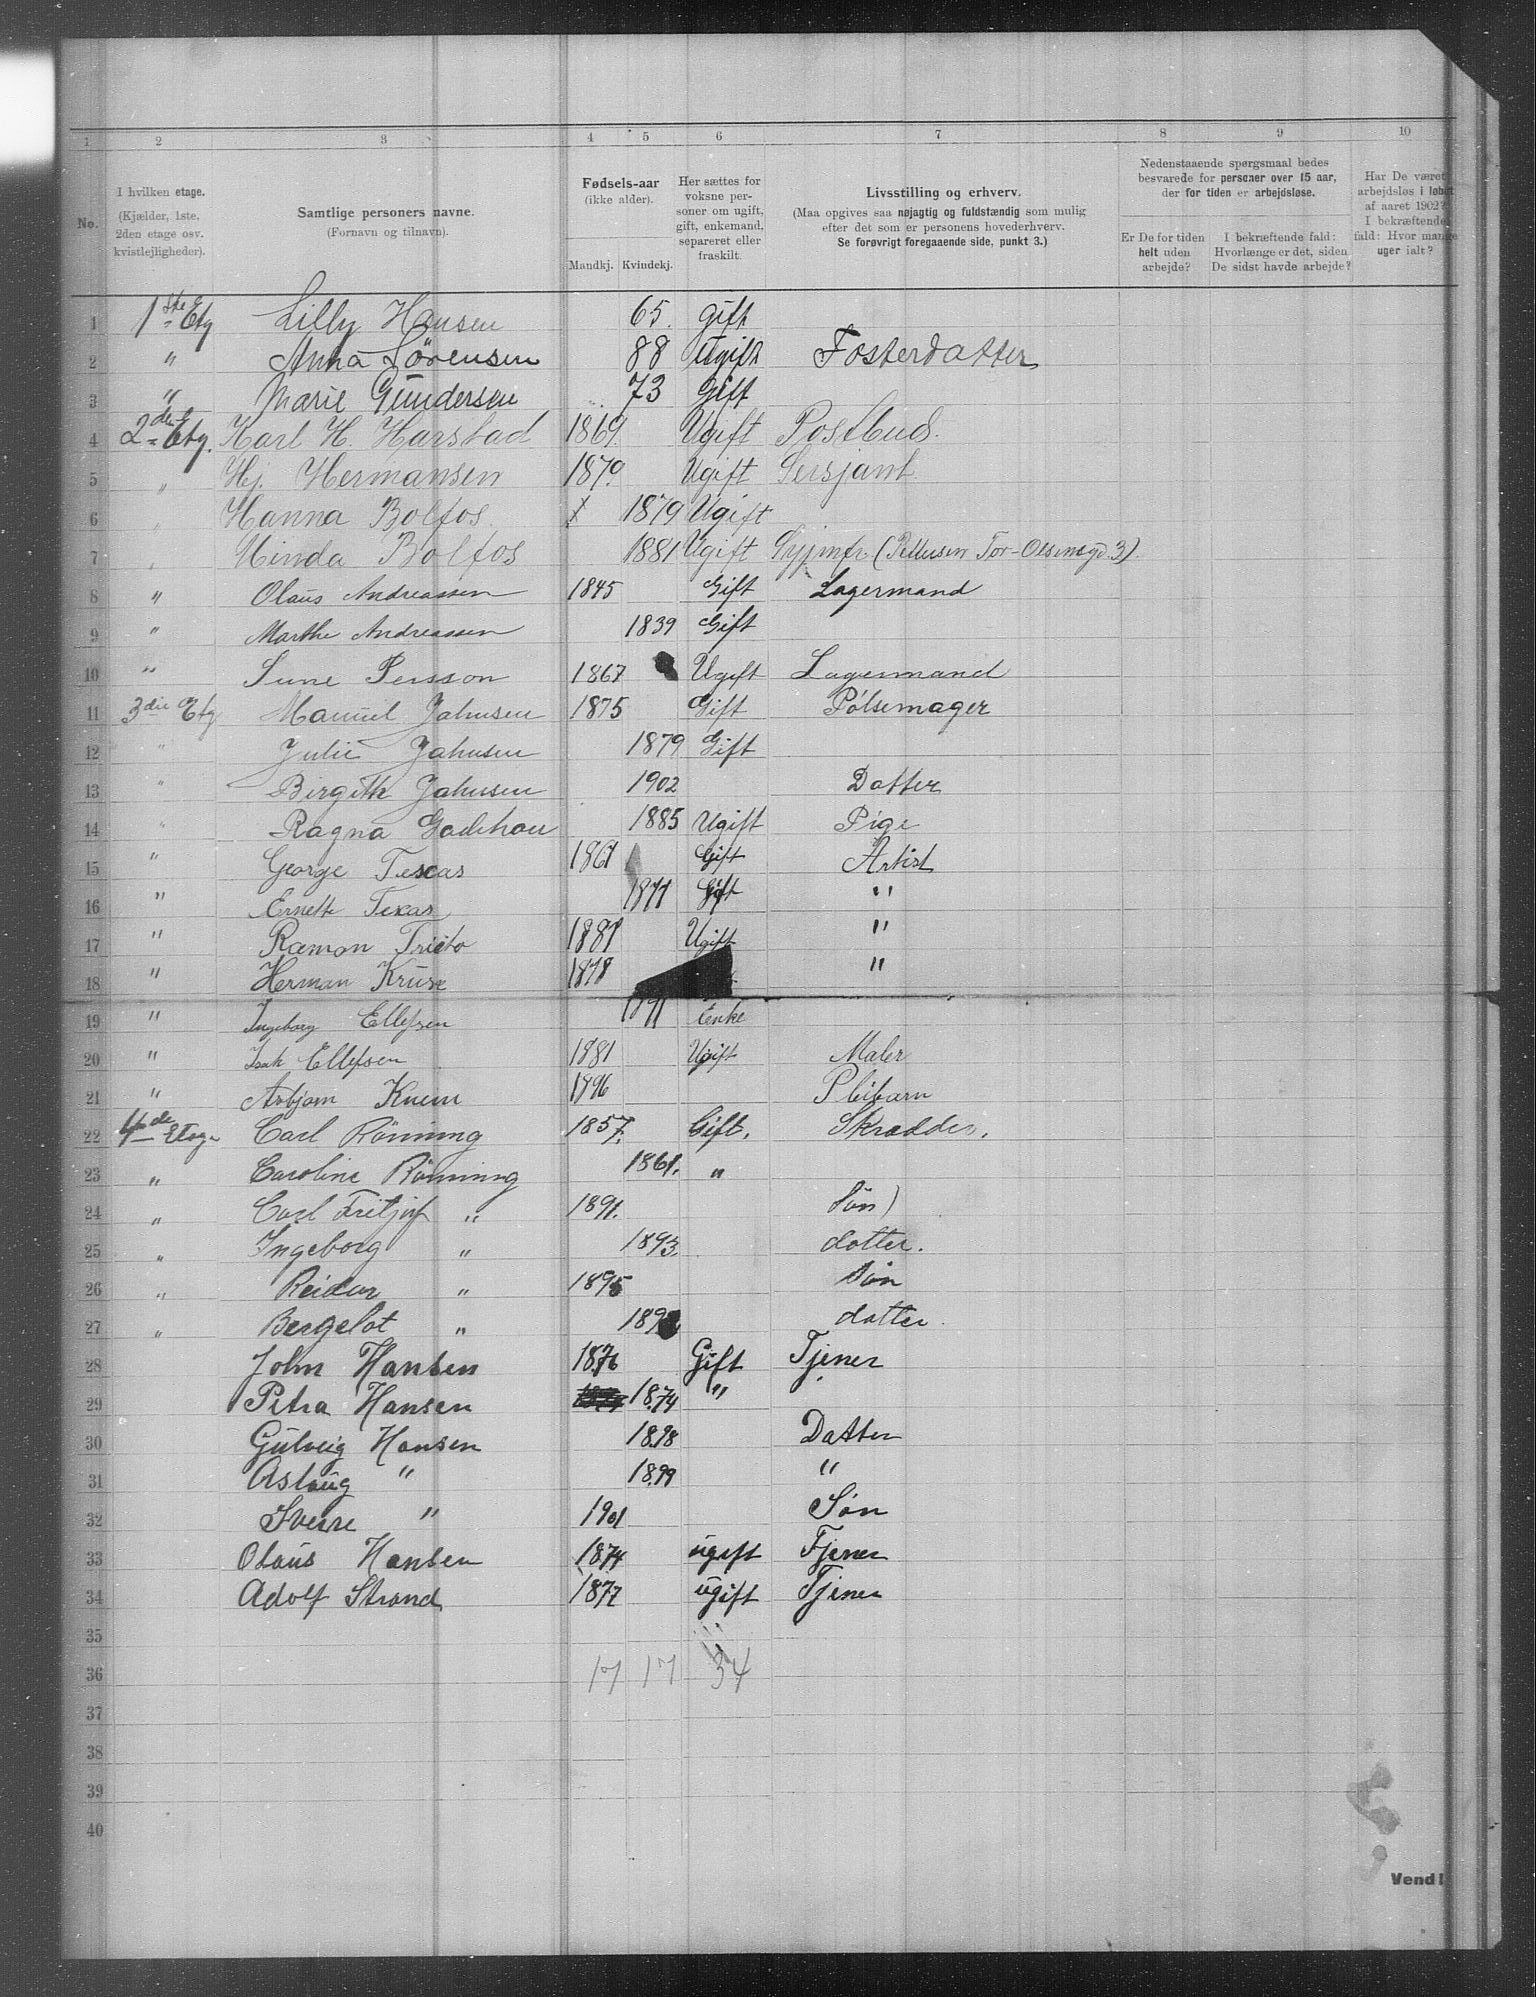 1 2 3 4 5 6 7 8 9 10
No. I hvilken etage. (Kjælder, 1ste, 2den etage osv. kvistlejligheder). Samtlige personers navne. (Fornavn og tilnavn). Fødsels-aar (ikke alder). Mandkj. Kvindekj. Her sættes for voksne personer om ugift, gift, enkemand, separeret eller fraskilt. Livsstilling og erhverv. (Maa opgives saa nøjagtig og fuldstændig som mulig efter det som er personens hovederhverv. Se forøvrigt foregaaende side, punkt 3.) Nedenstaaende spørgsmaal bedes besvarede for personer over 15 aar, der for tiden er arbejdsløse. Er De for tiden helt uden arbejde? I bekræftende fald: Hvorlænge er det, siden De sidst havde arbejde? Har De været arbejdsløs i løbet af aaret 1902? I bekræftende fald: Hvor mange uger ialt?
1 1ste Etg Lilly Hansen 65. gift
2 " Anna Sörensen 88 Ugift Fosterdatter
3 " Marie Gundersen 73 Gift
4 2den Etg. Karl H. Harstad 1869. Ugift Postbud.
5 " Hj. Hermansen 1879. Ugift Sersjant
6 " Hanna Bolfos. 1879 Ugift
7 " Minda Bolfos 1881 Ugift Syjmfr. (Pettersen Tor-Olsensgd. 3).
8 " Olaus Andreassen 1845 Gift Lagermand
9 " Marthe Andreassen 1839 Gift
10 " Sune Persson 1867 Ugift Lagermand
11 3die Etg Manuel Jahnsen 1875 Gift Pølsemager
12 " Julie Jahnsen 1879 Gift
13 " Birgith Jahnsen 1902 Datter
14 " Ragna 1885 Ugift Pige
15 " George Texas 1861 Gift Artist
16 " Ernette Texas 1871 Gift "
17 " Ramon 1881 Ugift "
18 " Herman Kruse 1878 "
19 " Ingeborg Ellefsen Enke
20 " Isak Ellefsen 1881 Ugift Maler
21 " Asbjørn 1896 Pleibarn
22 4de Etage Carl Rönning 1857. Gift. Skrædder.
23 " Caroline Rönning 1861. "
24 " Carl Fritjof " 1891. Søn)
25 " Ingeborg " 1893. datter.
26 " Reidar " 1895 Søn
27 " Bergelot " datter.
28 John Hansen 1876 Gift Tjener
29 Petra Hansen 1874 "
30 Gulveig Hansen 1898 Datter
31 Aslaug " 1899 "
32 Sverre " 1901 Søn
33 Olaus Hansen 1874 ugift Tjener
34 Adolf Strand 1877 ugift Tjener
35
36 17 17 34
37
38
39
40
Vend!